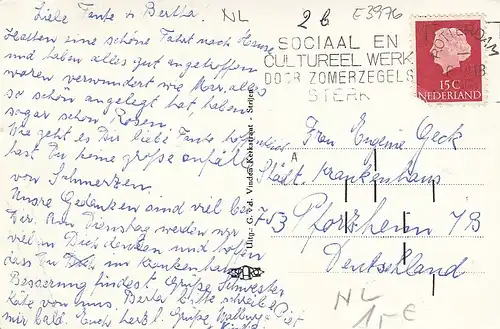 Liebe Tante u Bertha.
Hatten eine schöne Fahrt nach Hause
und haben alles gut angetroffen
waren verwundert wie Mar. alles
so schön angelegt hat, haben
sogar schön Rosen.
Wie geht es Dir liebe Tante hoffen
hast Du keine große anfäll
von Schmerzen.
Unsre Gedanken sind viel bei
Dir. Am Dienstag werden wir
viel an Dich denken und hoffen
dass Du im Krankenhaus
Besserung findest. Grüße Schwester
Käte von uns Berta bitte schreibe
mir bald. Euch herzl. Grüße, Walburga Piet
NL
2 6
E3976
SOCIAAL EN
CULTUREEL WERK
DOOR ZOMERZEGELS
STERK
15 C
NEDERLAND
Uitg.: G. v.d. Vinden, Kerkstraat - Strijen
Frau Eugenie Geck
A
Städt. Krankenhaus
753 Pforzheim /B
Deutschland
NL
15 €